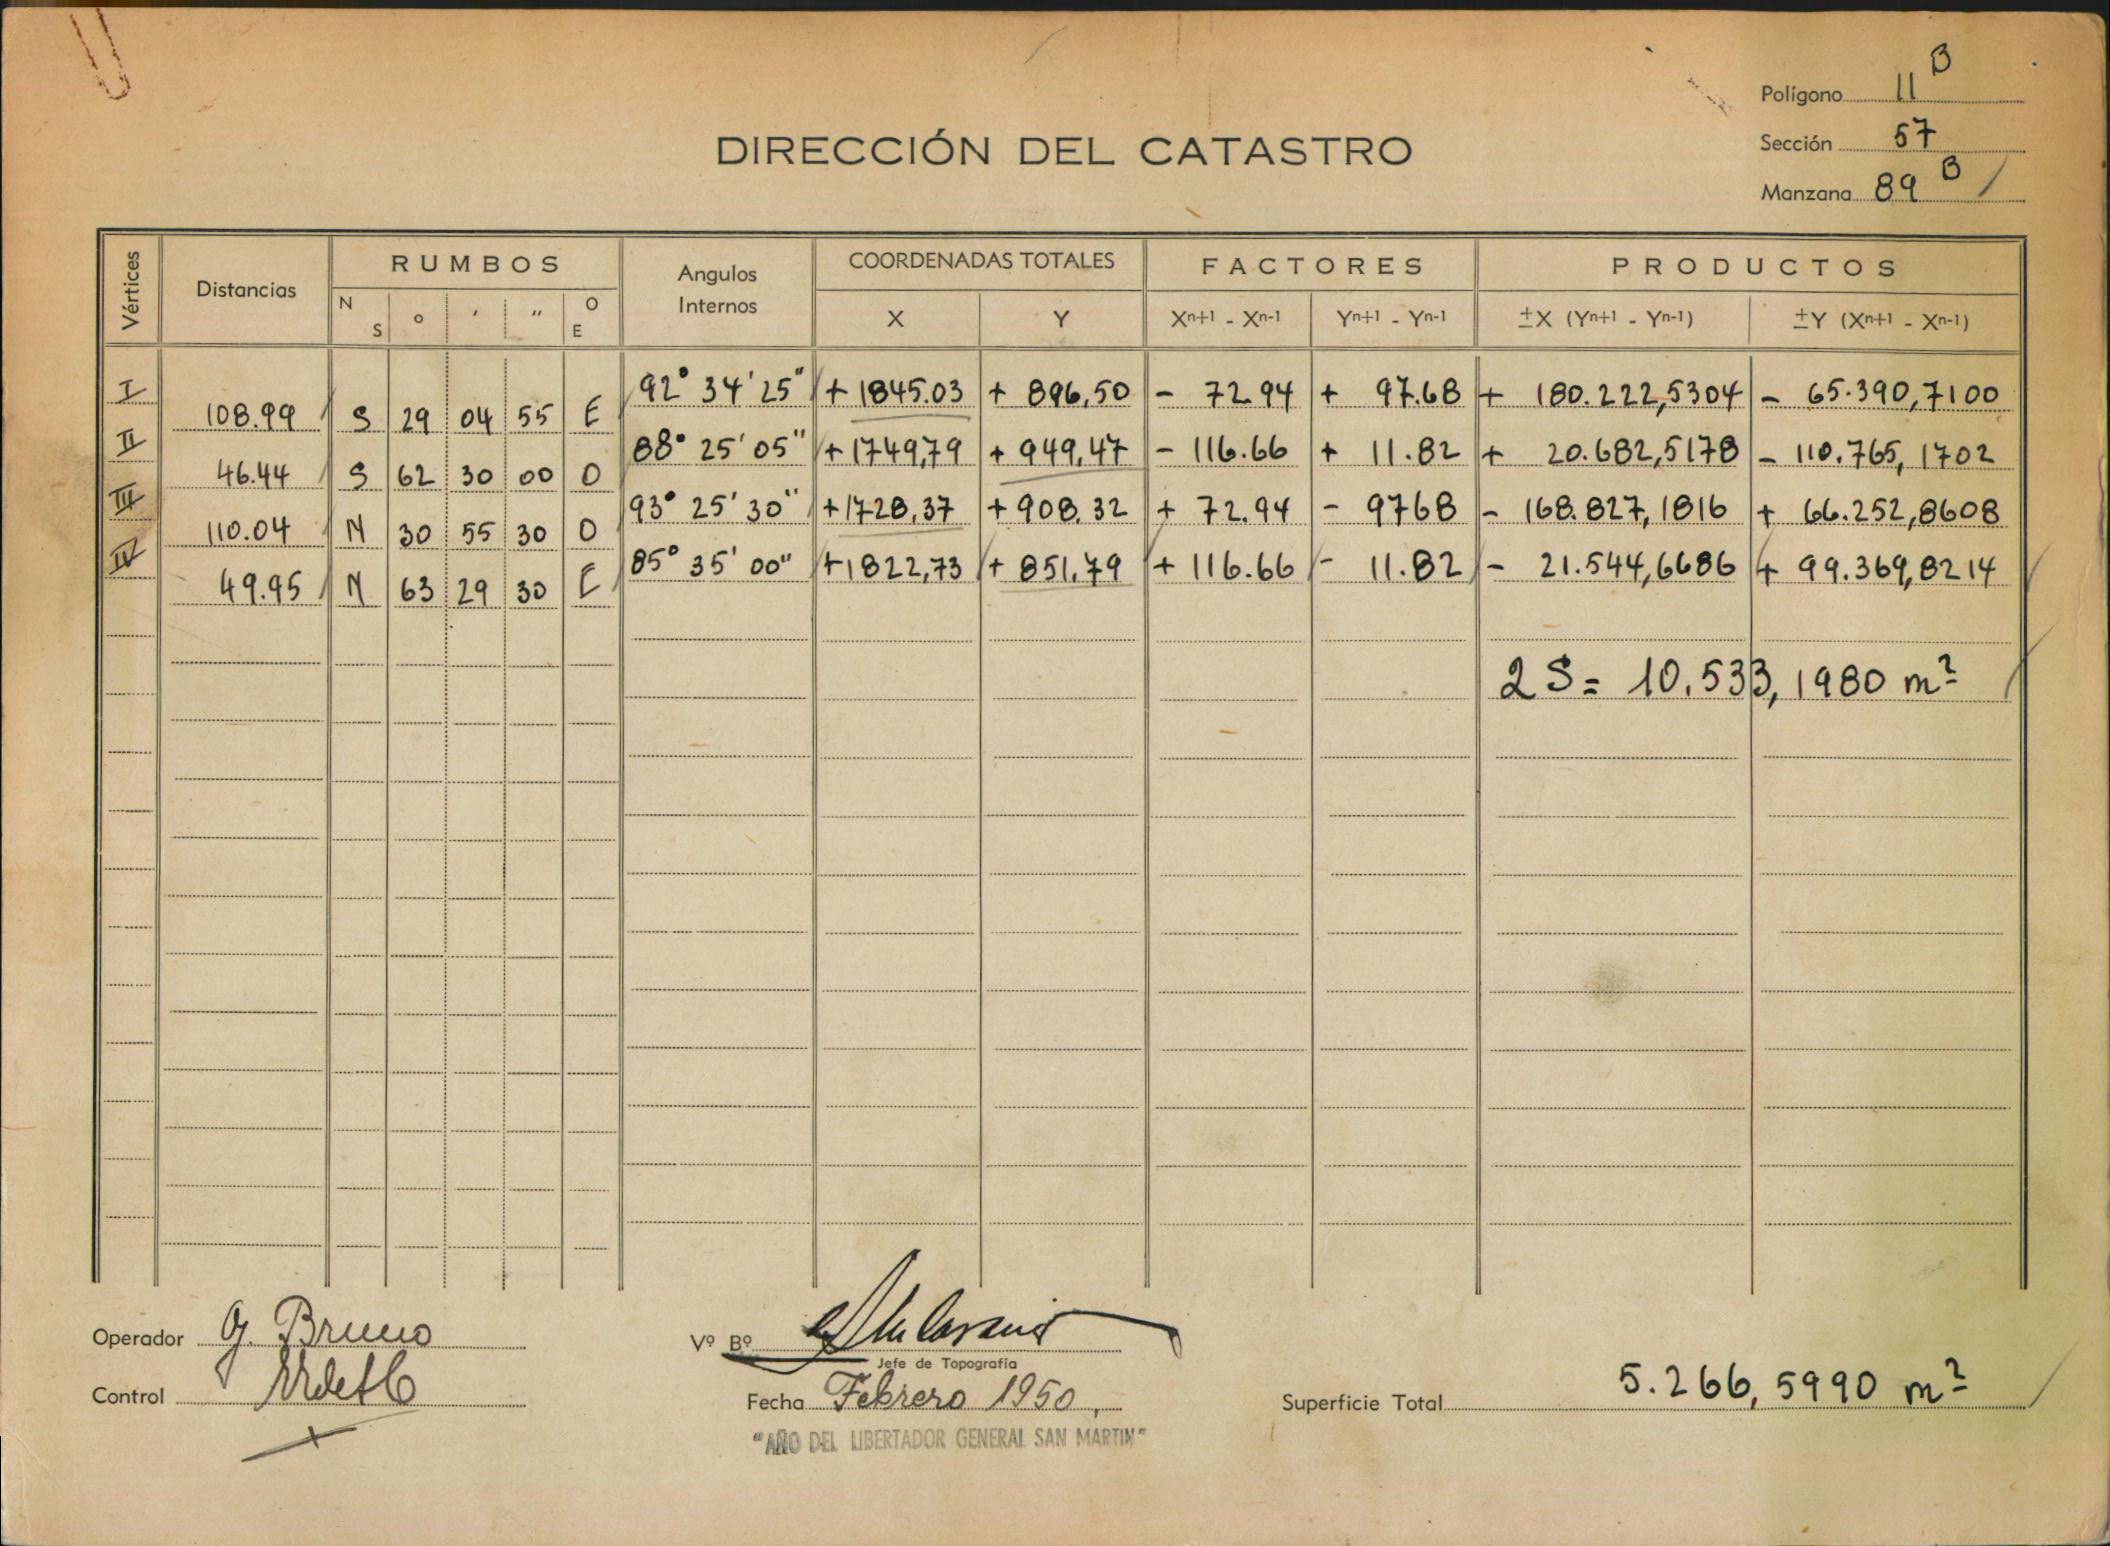 Polígono 11 B
DIRECCIÓN DEL CATASTRO
Sección 57
Manzana 89 B
Vértices Distancias RUMBOS Angulos Internos COORDENADAS TOTALES FACTORES PRODUCTOS
N S ° ' " O E X Y Xn+1 - Xn-1 Yn+1 - Yn-1 ±X (Yn+1 - Yn-1) ±Y (Xn+1 - Xn-1)
I 92° 34' 25" + 1845.03 + 896,50 - 72.94 + 97.68 + 180.222,5304 - 65.390,7100
108.99 S 29 04 55 E
II 88° 25' 05" + 1749,79 + 949,47 - 116.66 + 11.82 + 20.682,5178 - 110.765,1702
46.44 S 62 30 00 O
III 93° 25' 30" + 1728,37 + 908.32 + 72.94 - 9768 - 168.827,1816 + 66.252,8608
110.04 N 30 55 30 O
IV 85° 35' 00" + 1822,73 + 851.79 + 116.66 - 11.82 - 21.544,6686 + 99.369,8214
49.95 N 63 29 30 E
2 S = 10.533,1980 m²
Operador G. Bruno
Vº Bº
Jefe de Topografía
Control
Fecha Febrero 1950,
Superficie Total 5.266,5990 m²
"AÑO DEL LIBERTADOR GENERAL SAN MARTIN"